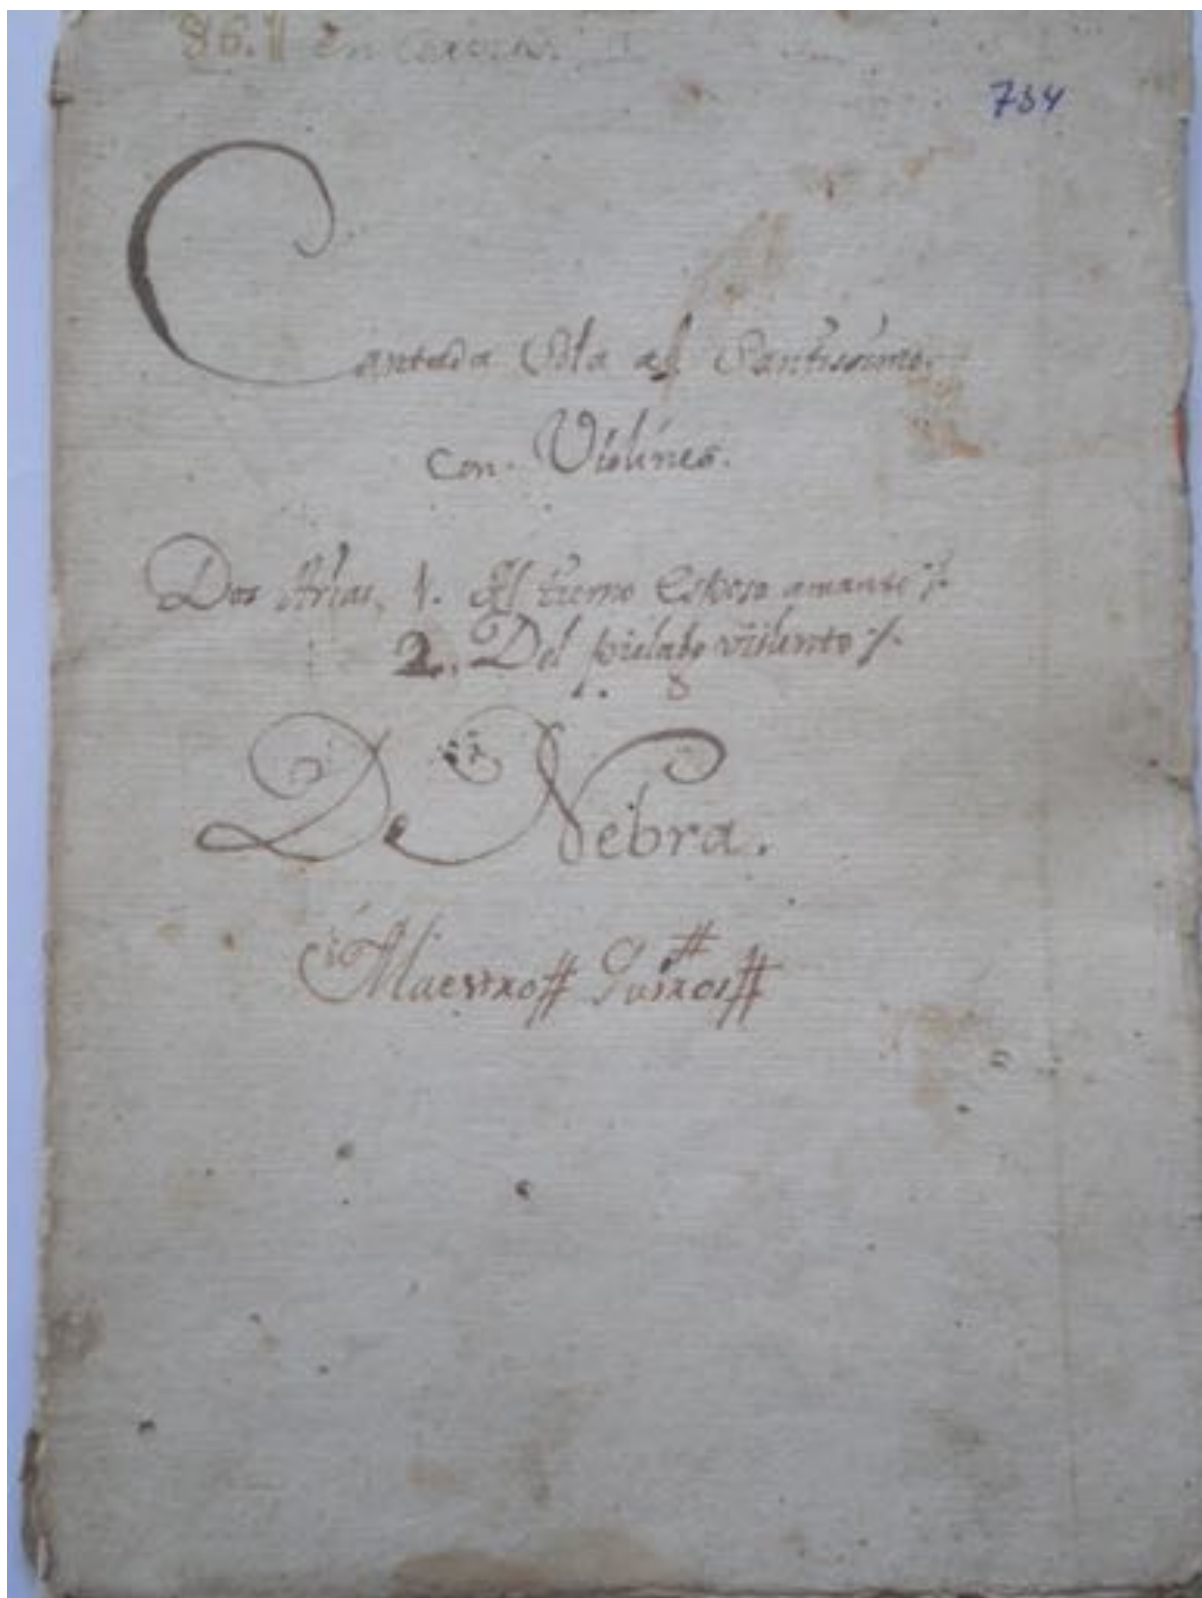 86.
784
Cantada Sola al Santissimo.
Con. Violines.
Dos Arias, 1. Al tierno Esposo amante
2. Del pielago violento
De Nebra.
Maestro